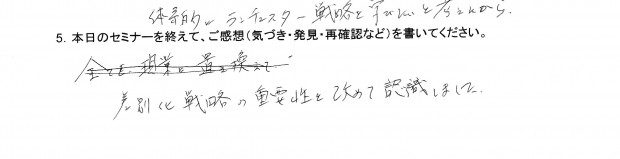 体系的にランチェスター戦略を学びたいと考えたから.
5. 本日のセミナーを終えて、ご感想（気づき・発見・再確認など）を書いてください。
差別化戦略の重要性を改めて認識しました.